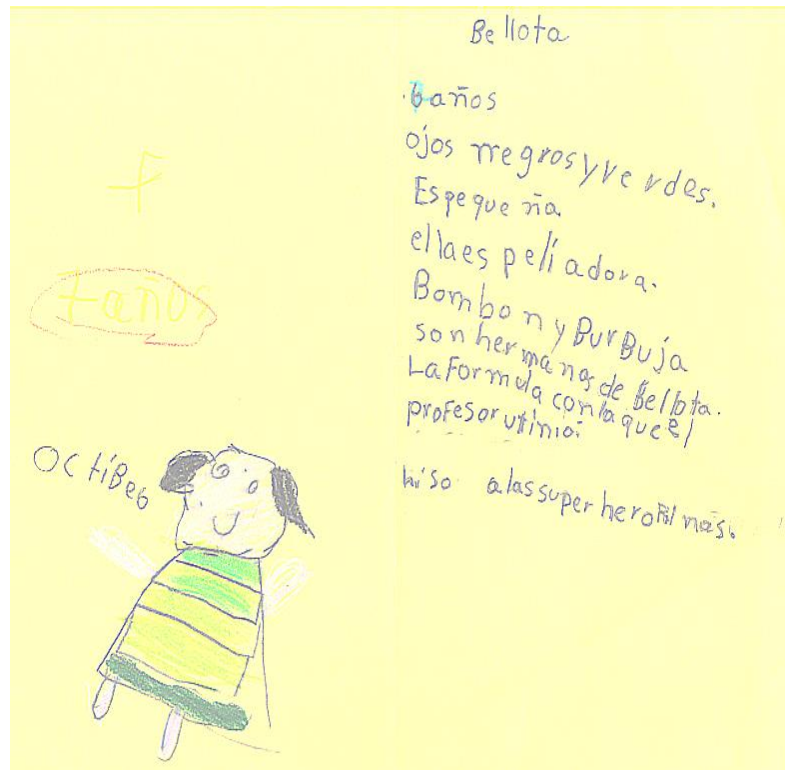 Bellota
6 años
ojos negros y verdes.
Es pequeña
ella es peliadora.
Bombon y BurBuja
son hermanas de Bellota.
La Formula con la que el
profesor utinio.
hiso a las super heroinas.
7 años
OctiBe6